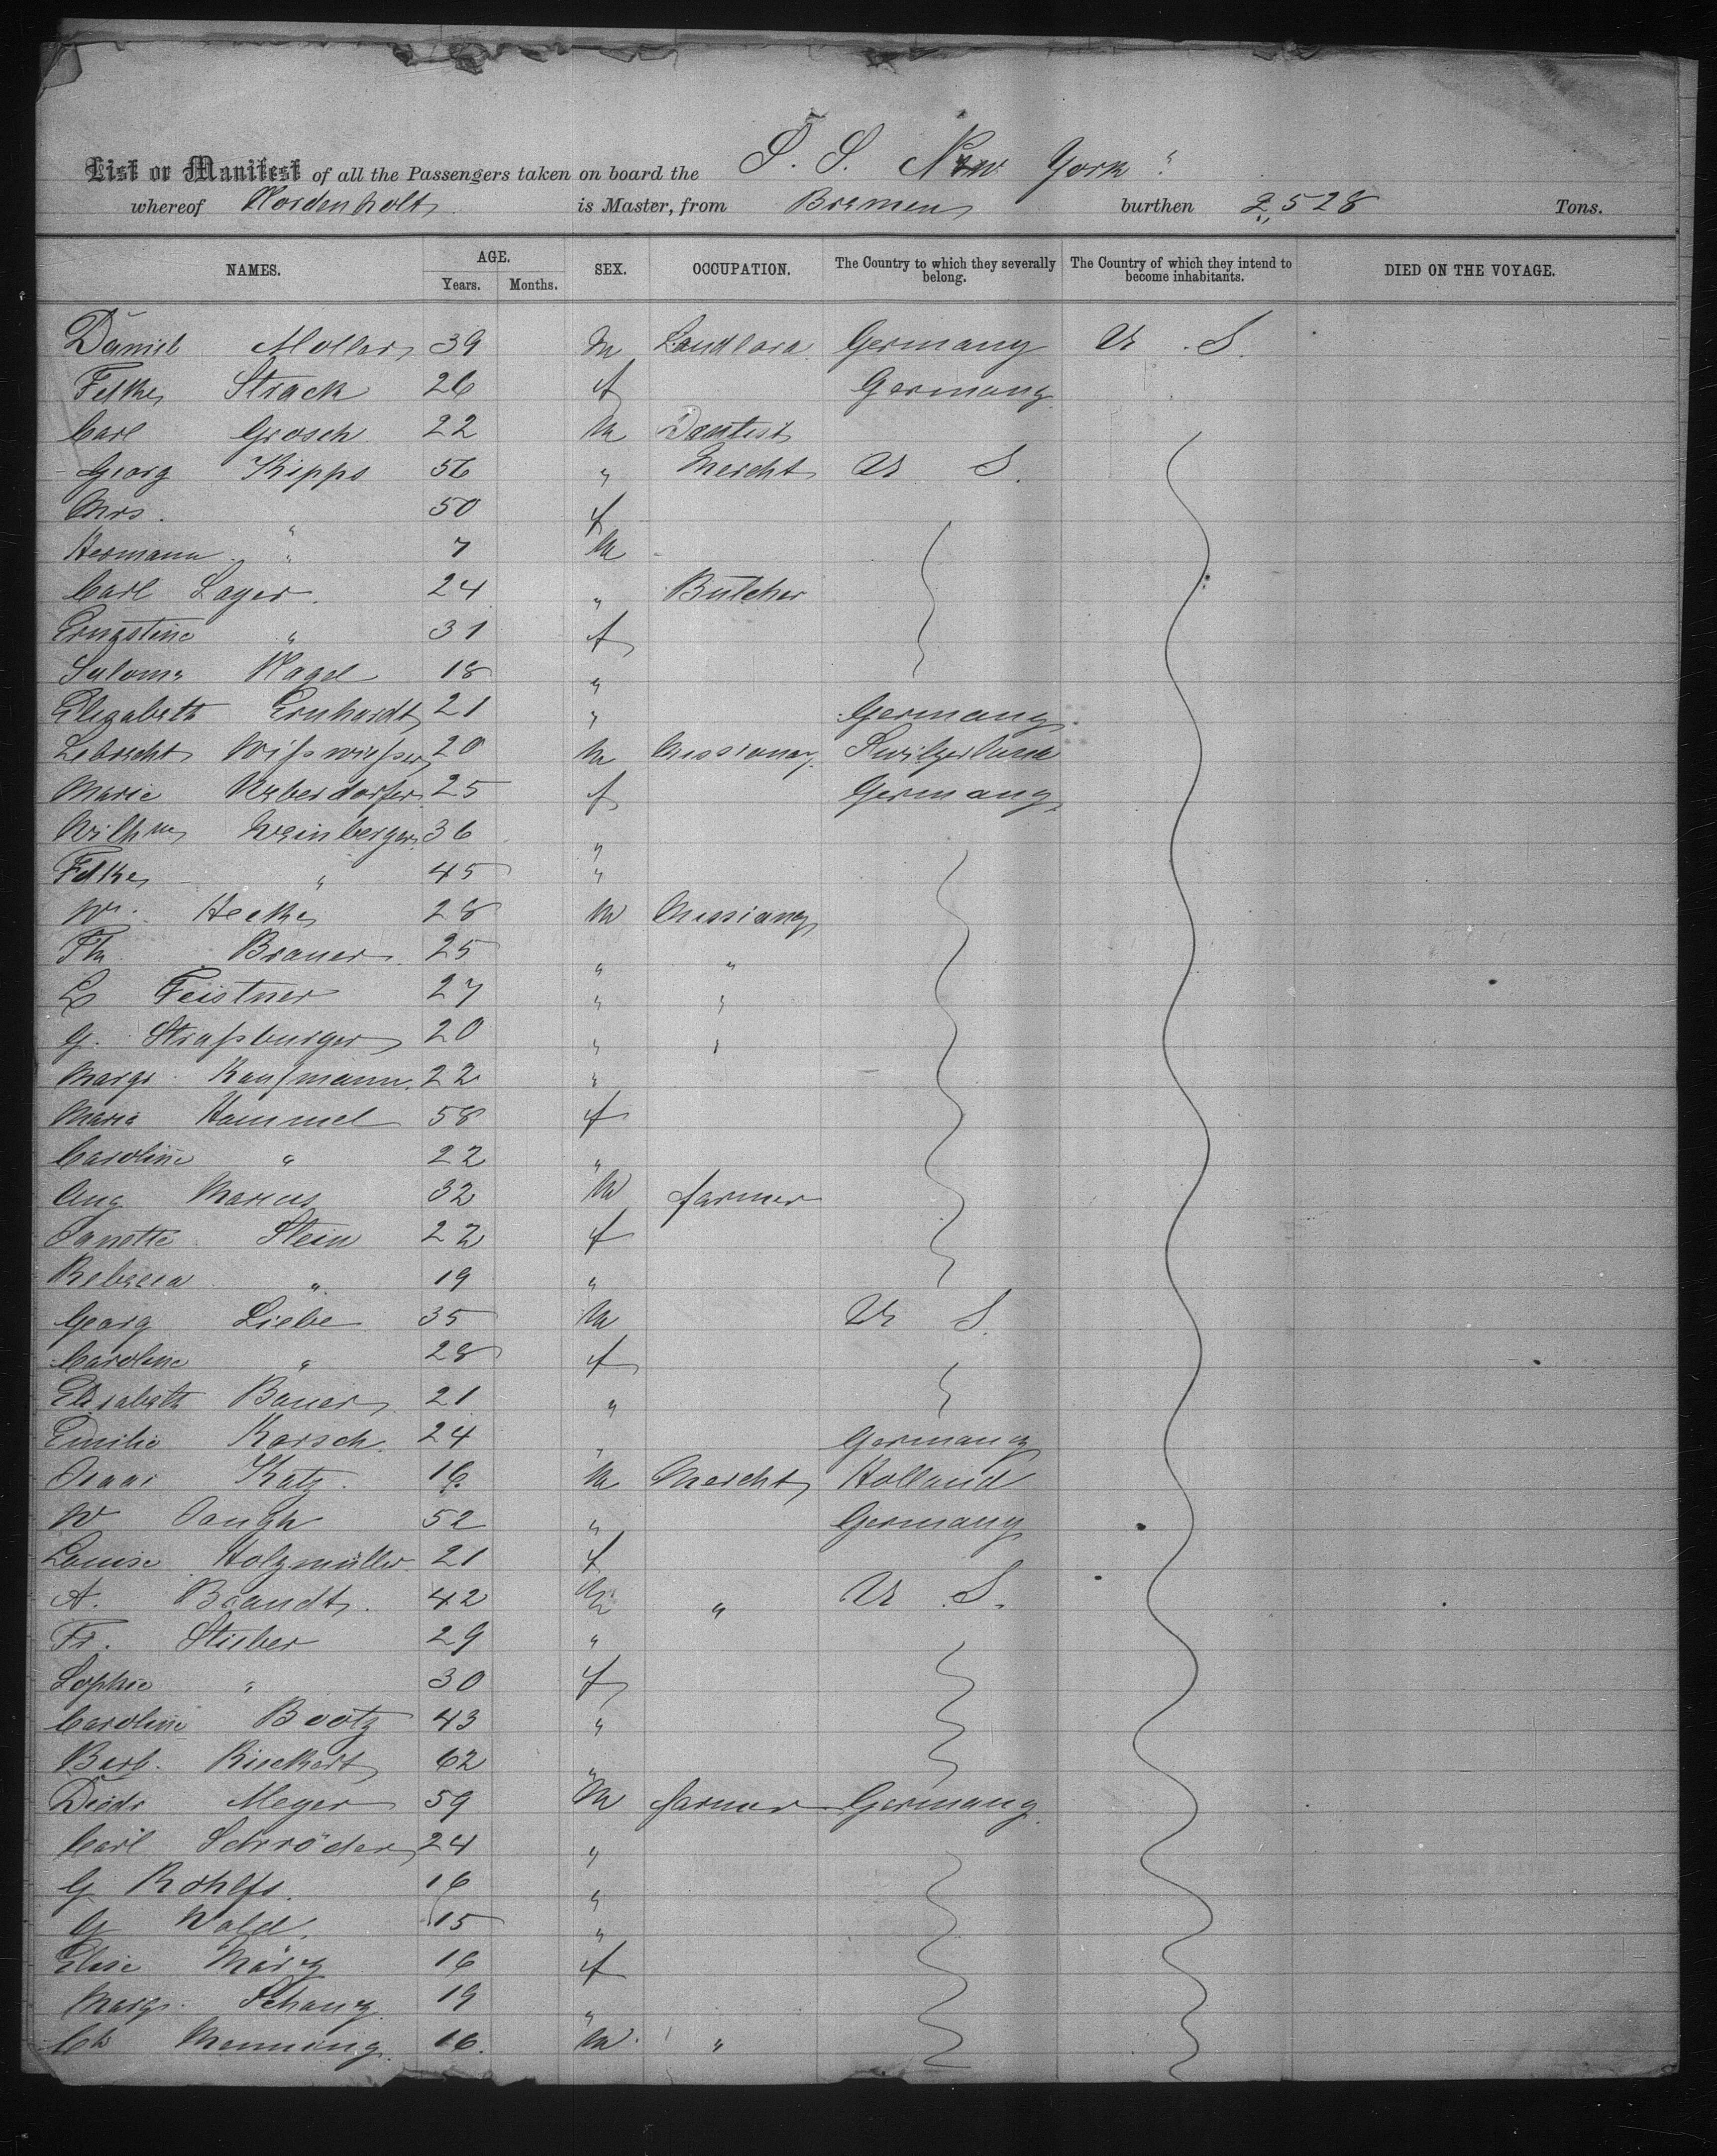 List or Manifest of all the Passengers taken on board the S. S. New York
whereof Nordenholt is Master, from Bremen burthen 2,528 Tons.
NAMES. AGE. Years. Months. SEX. OCCUPATION. The Country to which they severally belong. The Country of which they intend to become inhabitants. DIED ON THE VOYAGE.
Daniel Moller 39 m Landlord Germany U S.
Strack 26 f Germany
Carl Grosch 22 m Dentist
Georg Kipps 56 " Mercht U S.
Mrs. " 50 f
Hermann " 7 m
Carl Lager 24 " Butcher
Ernestine " 31 f
Salome Nagel 18 "
Elisabeth Ernhardt 21 " Germany
Lebrecht 20 m Missionary Switzerland
Marie 25 f Germany
Wilhm Weinberger 36 "
" 45 "
Wm. Hecke 28 m Missionary
Th. Brauer 25 " "
L Feistner 27 " "
G. Straßburger 20 " "
Margr. Kaufmann 22 "
Maria Hammel 58 f
Caroline " 22 "
Aug Marcus 32 m farmer
Janette Stein 22 f
Rebecca " 19 "
Georg Liebe 35 m U S.
Caroline " 28 f
Elisabeth Bauer 21 "
Emilie Karsch 24 " Germany
Isaac Katz 16 m Mercht Holland
W 52 " Germany
Louise Holzmüller 21 f
A. Brandt 42 m " U S.
Fr. Stieber 29 "
Sophie " 30 f
Caroline Bootz 43 "
Barb. Rieckert 62 "
Diedr Meyer 59 m farmer Germany
Carl Schröder 24 "
G Rohlfs. 16 "
G Wald. 15 "
Elise März 16 f
Margr. Schanz 19 "
Ch Menning 16. m "